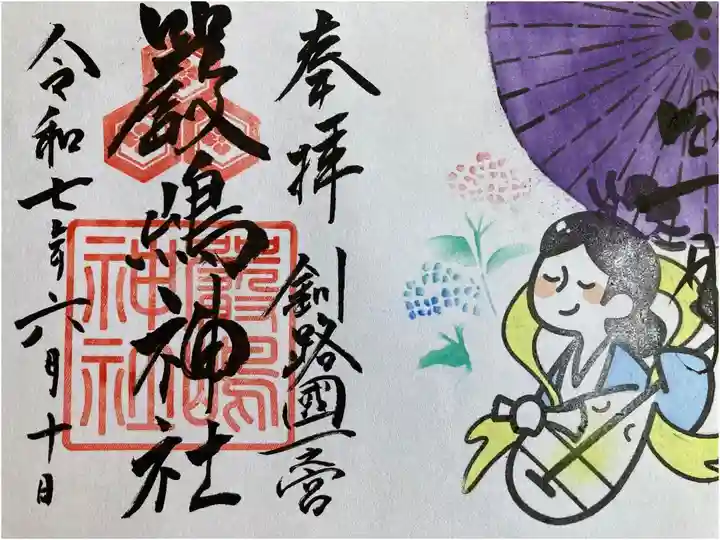 奉拝
釧路國一宮
巖嶋神社
令和七年六月十日
巖嶋
神社